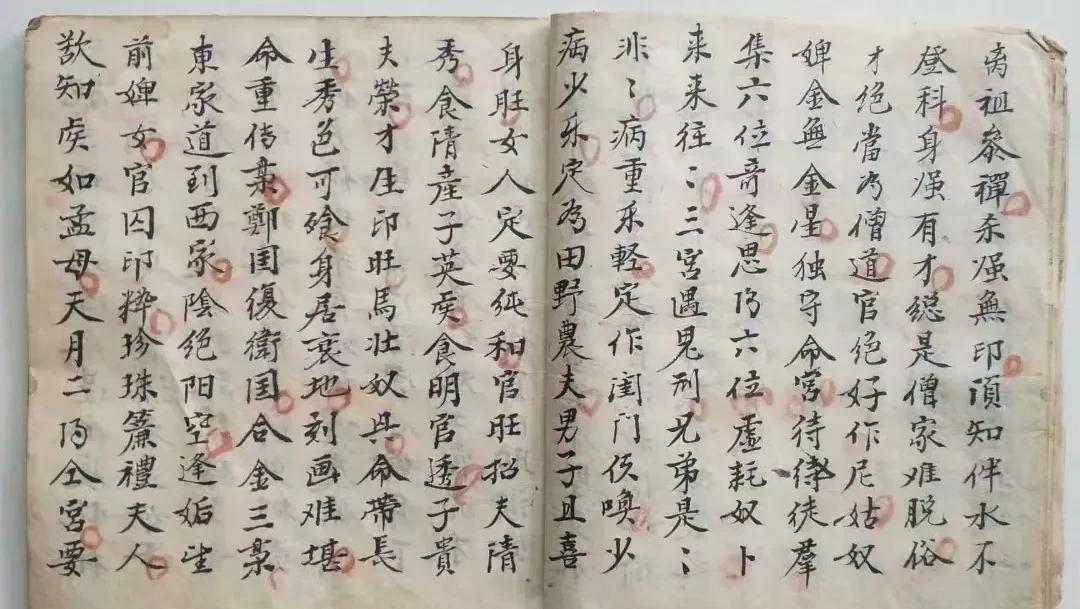 离祖叅禪杀强無印頂知伴水不
登科身强有才縂是僧家难脱俗
才绝當为僧道官绝好作尼姑奴
婢金無金星独守命宫待待徒羣
集六位奇逢思陷六位虚耗奴卜
来来往〻三宫遇鬼刑兄弟是〻
非〻病重乐軽定作闺门役唤少
病少乐定為田野農夫男子且喜
身旺女人定要纯和官旺招夫隋
秀食隋産子英矦食明官透子貴
夫榮才生印旺馬壮奴兴命帶長
生秀色可飡身居衰地刻画难堪
命重传槀鄭国復衛国合金三槀
東家道到西家陰绝阳空逢姤生
前婢女官囚印粹珍珠簾禮夫人
欲知矦如孟母天月二陷仝宮要